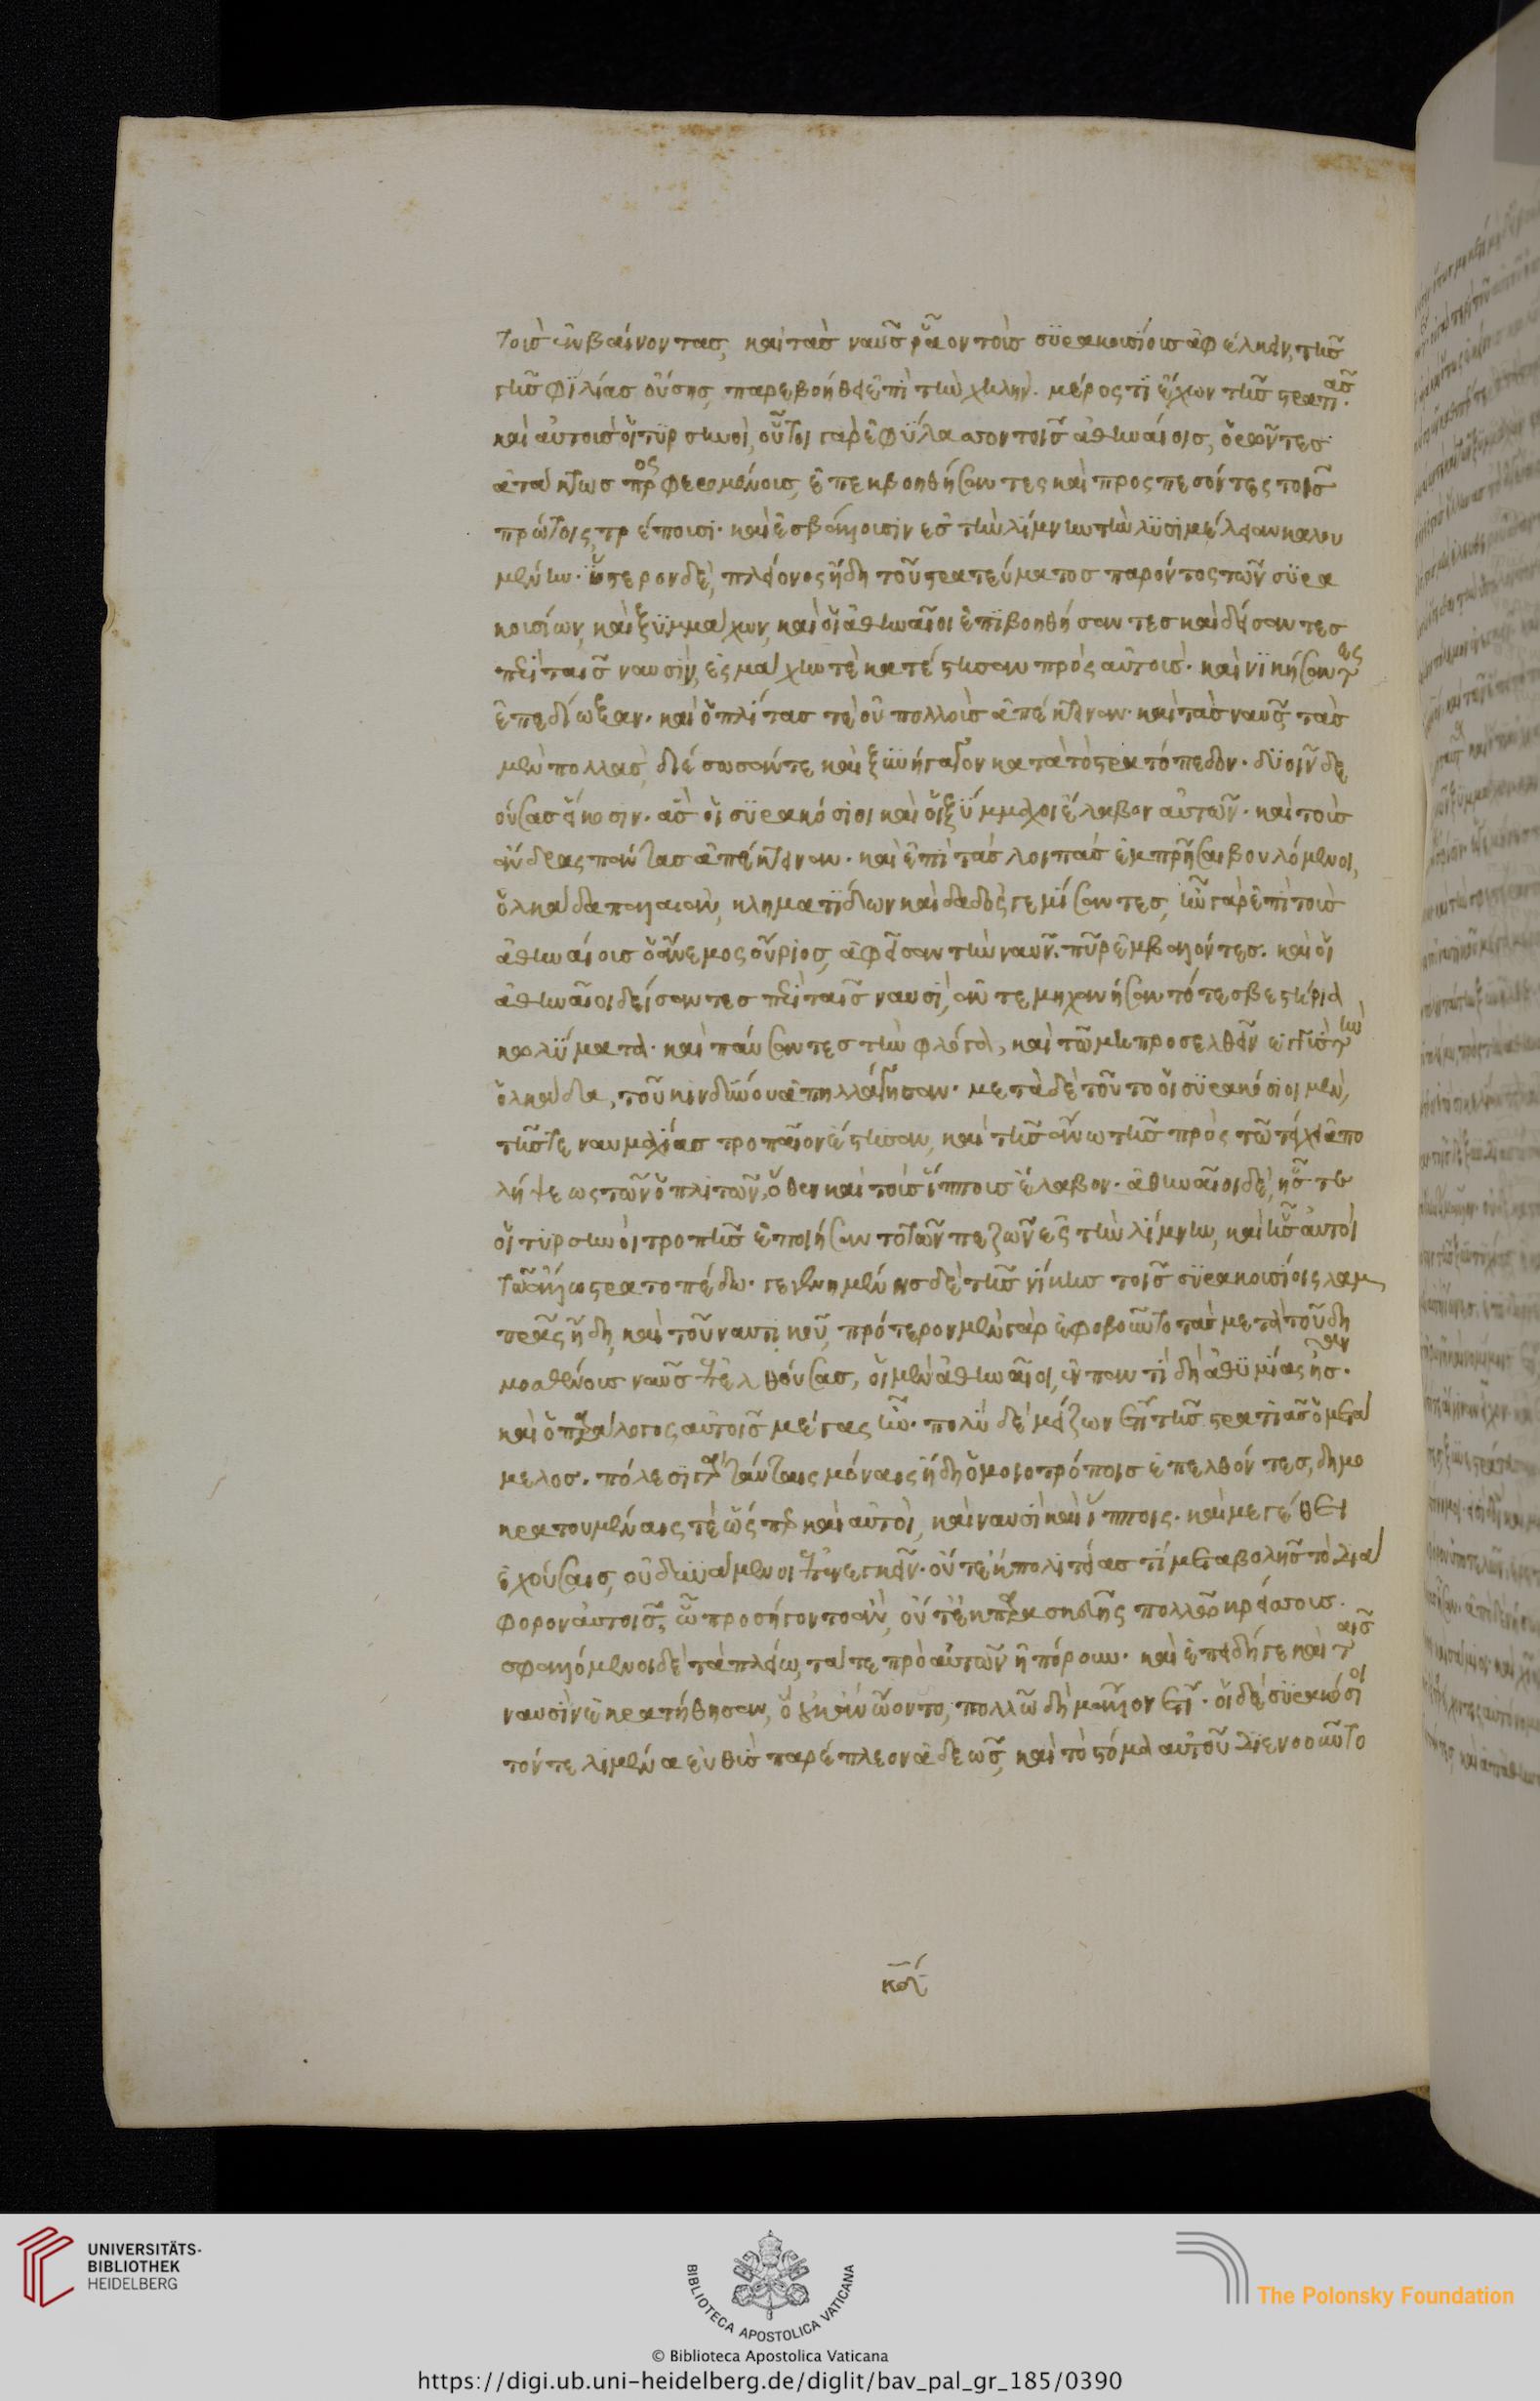 τοὺσ ἐκβαίνοντασ, καὶ τὰσ ναῦσ ῥᾶον τοὺσ συρακουσίους ἀφέλκειν, τῆσ
γῆσ φιλίασ οὔσησ, παρεβοήθει ἐπὶ τὴν χηλήν. μέρος τι ἔχων τῆσ στρατιᾶσ.
καὶ αὐτοὺσ οἱ τυρσηνοὶ, οὗτοι γὰρ ἐφύλασσον τοῖσ ἀθηναίοισ, ὁρῶντεσ
ἀτάκτωσ προσφερομένουσ, ἐπεκβοηθήσαντες καὶ προσπεσόντες τοῖσ
πρώτοις, τρέπουσι. καὶ ἐσβάλλουσιν εσ τὴν λίμνην τὴν λυσιμέλειαν καλου
μένην. ὕστερον δὲ, πλείονος ἤδη τοῦ στρατεύματοσ παρόντος τῶν συρα
κουσίων, καὶ ξυμμάχων, καὶ οἱ ἀθηναῖοι ἐπιβοηθήσαντεσ καὶ δείσαντεσ
περὶ ταῖσ ναυσὶν, ἐς μάχην τὲ κατέστησαν πρὸς αὐτοὺσ. καὶ νικήσαντες
ἐπεδίωξαν. καὶ ὁπλίτασ τὲ οὐ πολλοὺσ ἀπέκτειναν. καὶ τὰσ ναῦς τὰσ
μὲν πολλασ, διέσωσάν τε καὶ ξυνήγαγον κατὰ τὸ στρατόπεδον. δυοῖν δὲ
οὔσασ εἴκοσιν. ἃσ οἱ συρακόσιοι καὶ οἱ ξύμμαχοι ἔλαβον αὐτῶν. καὶ τοὺσ
ἄνδρας πάντασ ἀπέκτειναν. καὶ ἐπὶ τὰσ λοιπὰσ ἐμπρῆσαι βουλόμενοι,
ὁλκάδα παλαιὰν, κληματίδων καὶ δαδὸς γεμίσαντεσ, ἦν γὰρ ἐπὶ τοὺσ
ἀθηναίουσ ὁ ἄνεμος οὔριος, ἀφεῖσαν τὴν ναῦν. πῦρ ἐμβαλόντεσ. καὶ οἱ
ἀθηναῖοι δείσαντεσ περὶ ταῖσ ναυσὶ, ἀντεμηχανήσαντό τε σβεστήρια
κωλύματα. καὶ παύσαντεσ τὴν φλόγα, καὶ τῶ μὴ προσελθεῖν ἐγγὺσ τὴν
ὁλκάδα, τοῦ κινδύνου ἀπηλλάγησαν. μετὰ δὲ τοῦτο οἱ συρακόσιοι μὲν,
τῆσ τε ναυμαχίασ τροπαῖον ἔστησαν, καὶ τῆσ ἄνω τῆσ πρὸς τῶ τείχει ἀπο
λήψεως τῶν ὁπλιτῶν, ὅθεν καὶ τοὺσ ἵππουσ ἔλαβον. ἀθηναῖοι δὲ, ἧσ τε
οἱ τυρσηνοὶ τροπῆσ ἐποιήσαντο τῶν πεζῶν ἐς τὴν λίμνην, καὶ ἧσ αὐτοὶ
τῶ ἄλλω στρατοπέδω. γεγενημένησ δὲ τῆσ νίκησ τοῖσ συρακουσίοις λαμ
πρᾶς ἤδη, καὶ τοῦ ναυτικοῦ, πρότερον μὲν γὰρ ἐφοβοῦντο τὰσ μετὰ τοῦ δη
μοσθένουσ ναῦσ ἐπελθούσασ, οἱ μὲν ἀθηναῖοι, ἐν παντὶ δὴ ἀθυμίας ἦσαν.
καὶ ὁ παράλογος αὐτοῖσ μέγας ἦν. πολὺ δὲ μείζων ἔτι τῆσ στρατιᾶσ ὁ μετά
μελοσ. πόλεσι γὰρ ταύταις μόναις ἤδη ὁμοιοτρόποισ ἐπελθόντεσ, δημο
κρατουμέναις τὲ ὥσπερ καὶ αὐτοὶ, καὶ ναυσὶ καὶ ἵπποις. καὶ μεγέθει
ἐχούσαισ, οὐ δυνάμενοι ἐπενεγκεῖν. οὔτ᾽ ἐκ πολιτείασ τὶ μεταβολῆσ τὸ διά
φορον αὐτοῖσ, ὧ προσήγοντο ἂν, οὔτ᾽ ἐκ παρασκευῆς πολλῶ κρείσσουσ.
σφαλλόμενοι δὲ τὰ πλείω, τά τε πρὸ αὐτῶν ἠπόρουν. καὶ ἐπειδή γε καὶ ταῖσ
ναυσὶν ἐκρατήθησαν, ὃ οὐκ ἂν ὤοντο, πολλῶ δὴ μᾶλλον ἔτι. οἱ δὲ συρακόσιοι
τόν τε λιμένα εὐθὺσ παρέπλεον ἀδεῶσ, καὶ τὸ στόμα αὐτοῦ διενοοῦντο
UNIVERSITÄTS-
BIBLIOTHEK
HEIDELBERG
BIBLIOTECA APOSTOLICA VATICANA
The Polonsky Foundation
© Biblioteca Apostolica Vaticana
https://digi.ub.uni-heidelberg.de/diglit/bav_pal_gr_185/0390